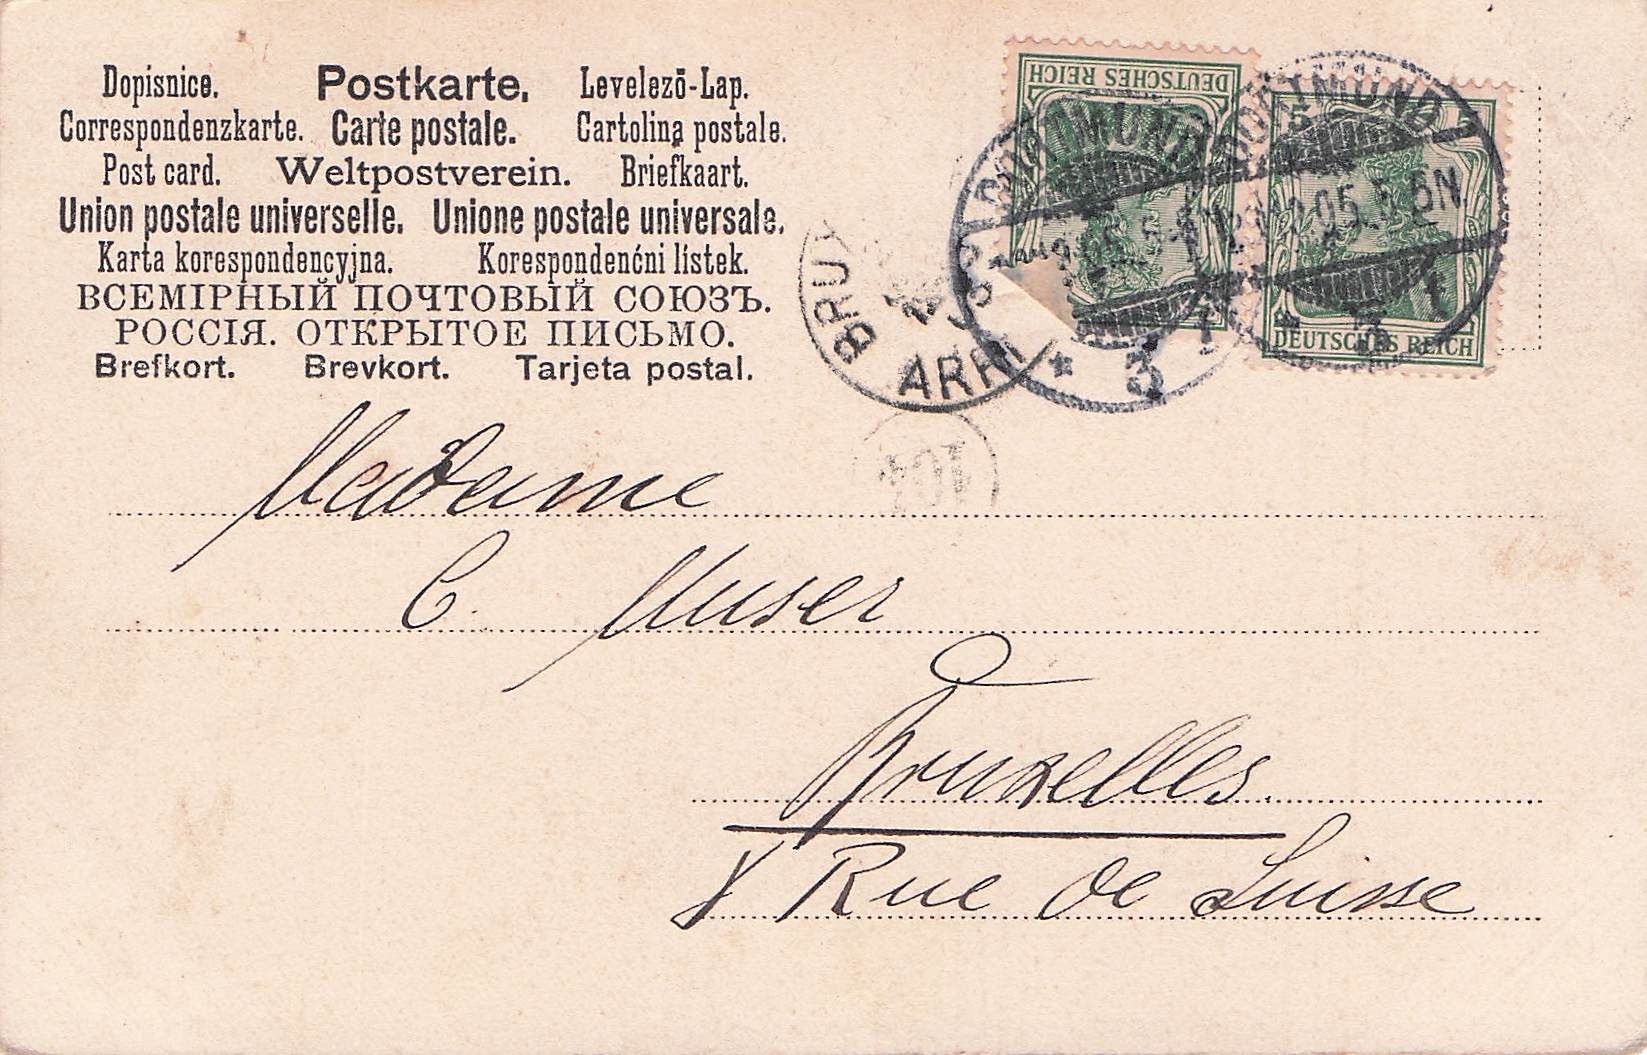 Dopisnice. Postkarte. Levelező-Lap.
Correspondenzkarte. Carte postale. Cartolina postale.
Post card. Weltpostverein. Briefkaart.
Union postale universelle. Unione postale universale.
Karta korespondencyjna. Korespondenćni lístek.
ВСЕМІРНЫЙ ПОЧТОВЫЙ СОЮЗЪ.
РОССІЯ. ОТКРЫТОЕ ПИСЬМО.
Brefkort. Brevkort. Tarjeta postal.
DEUTSCHES REICH
DORTMUND
3
5
DORTMUND
DEUTSCHES REICH
BRUX
ARRI
Madame
C. Muser
Bruxelles.
Rue de Suisse